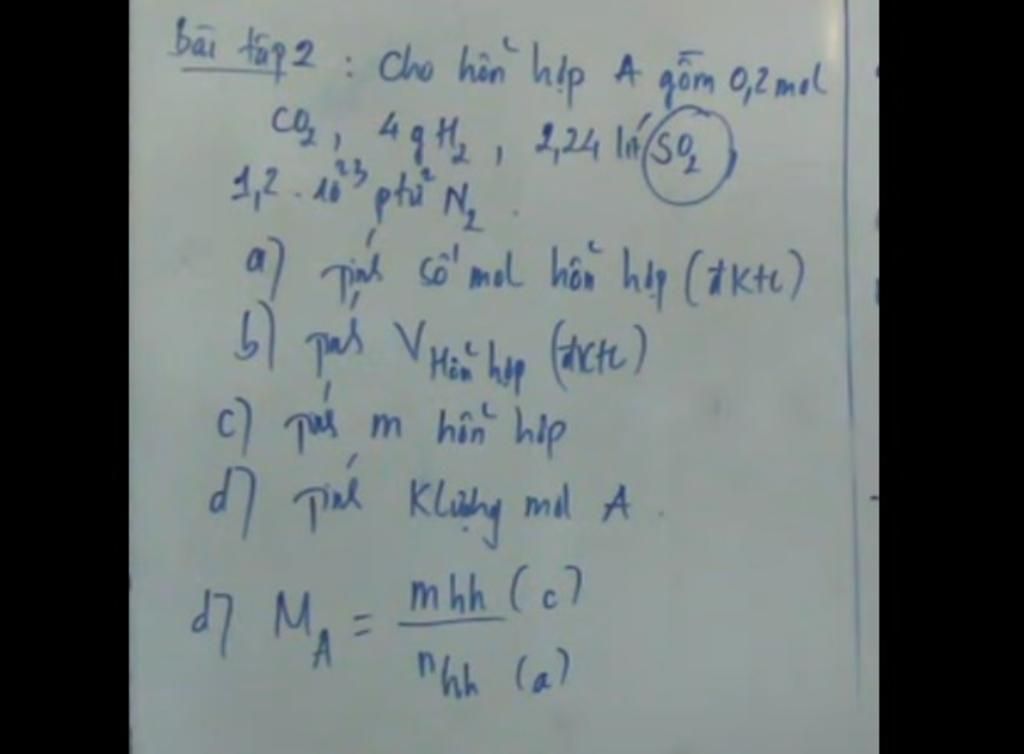 Bài tập 2 : Cho hỗn hợp A gồm 0,2 mol
CO₂, 4 g H₂, 2,24 lít SO₂,
1,2 . 10²³ ptử N₂ .
a) Tính số mol hỗn hợp (đktc)
b) Tính V Hỗn hợp (đktc)
c) Tính m hỗn hợp
d) Tính Klượng mol A .
d) M_A = mhh (c) / nhh (a)